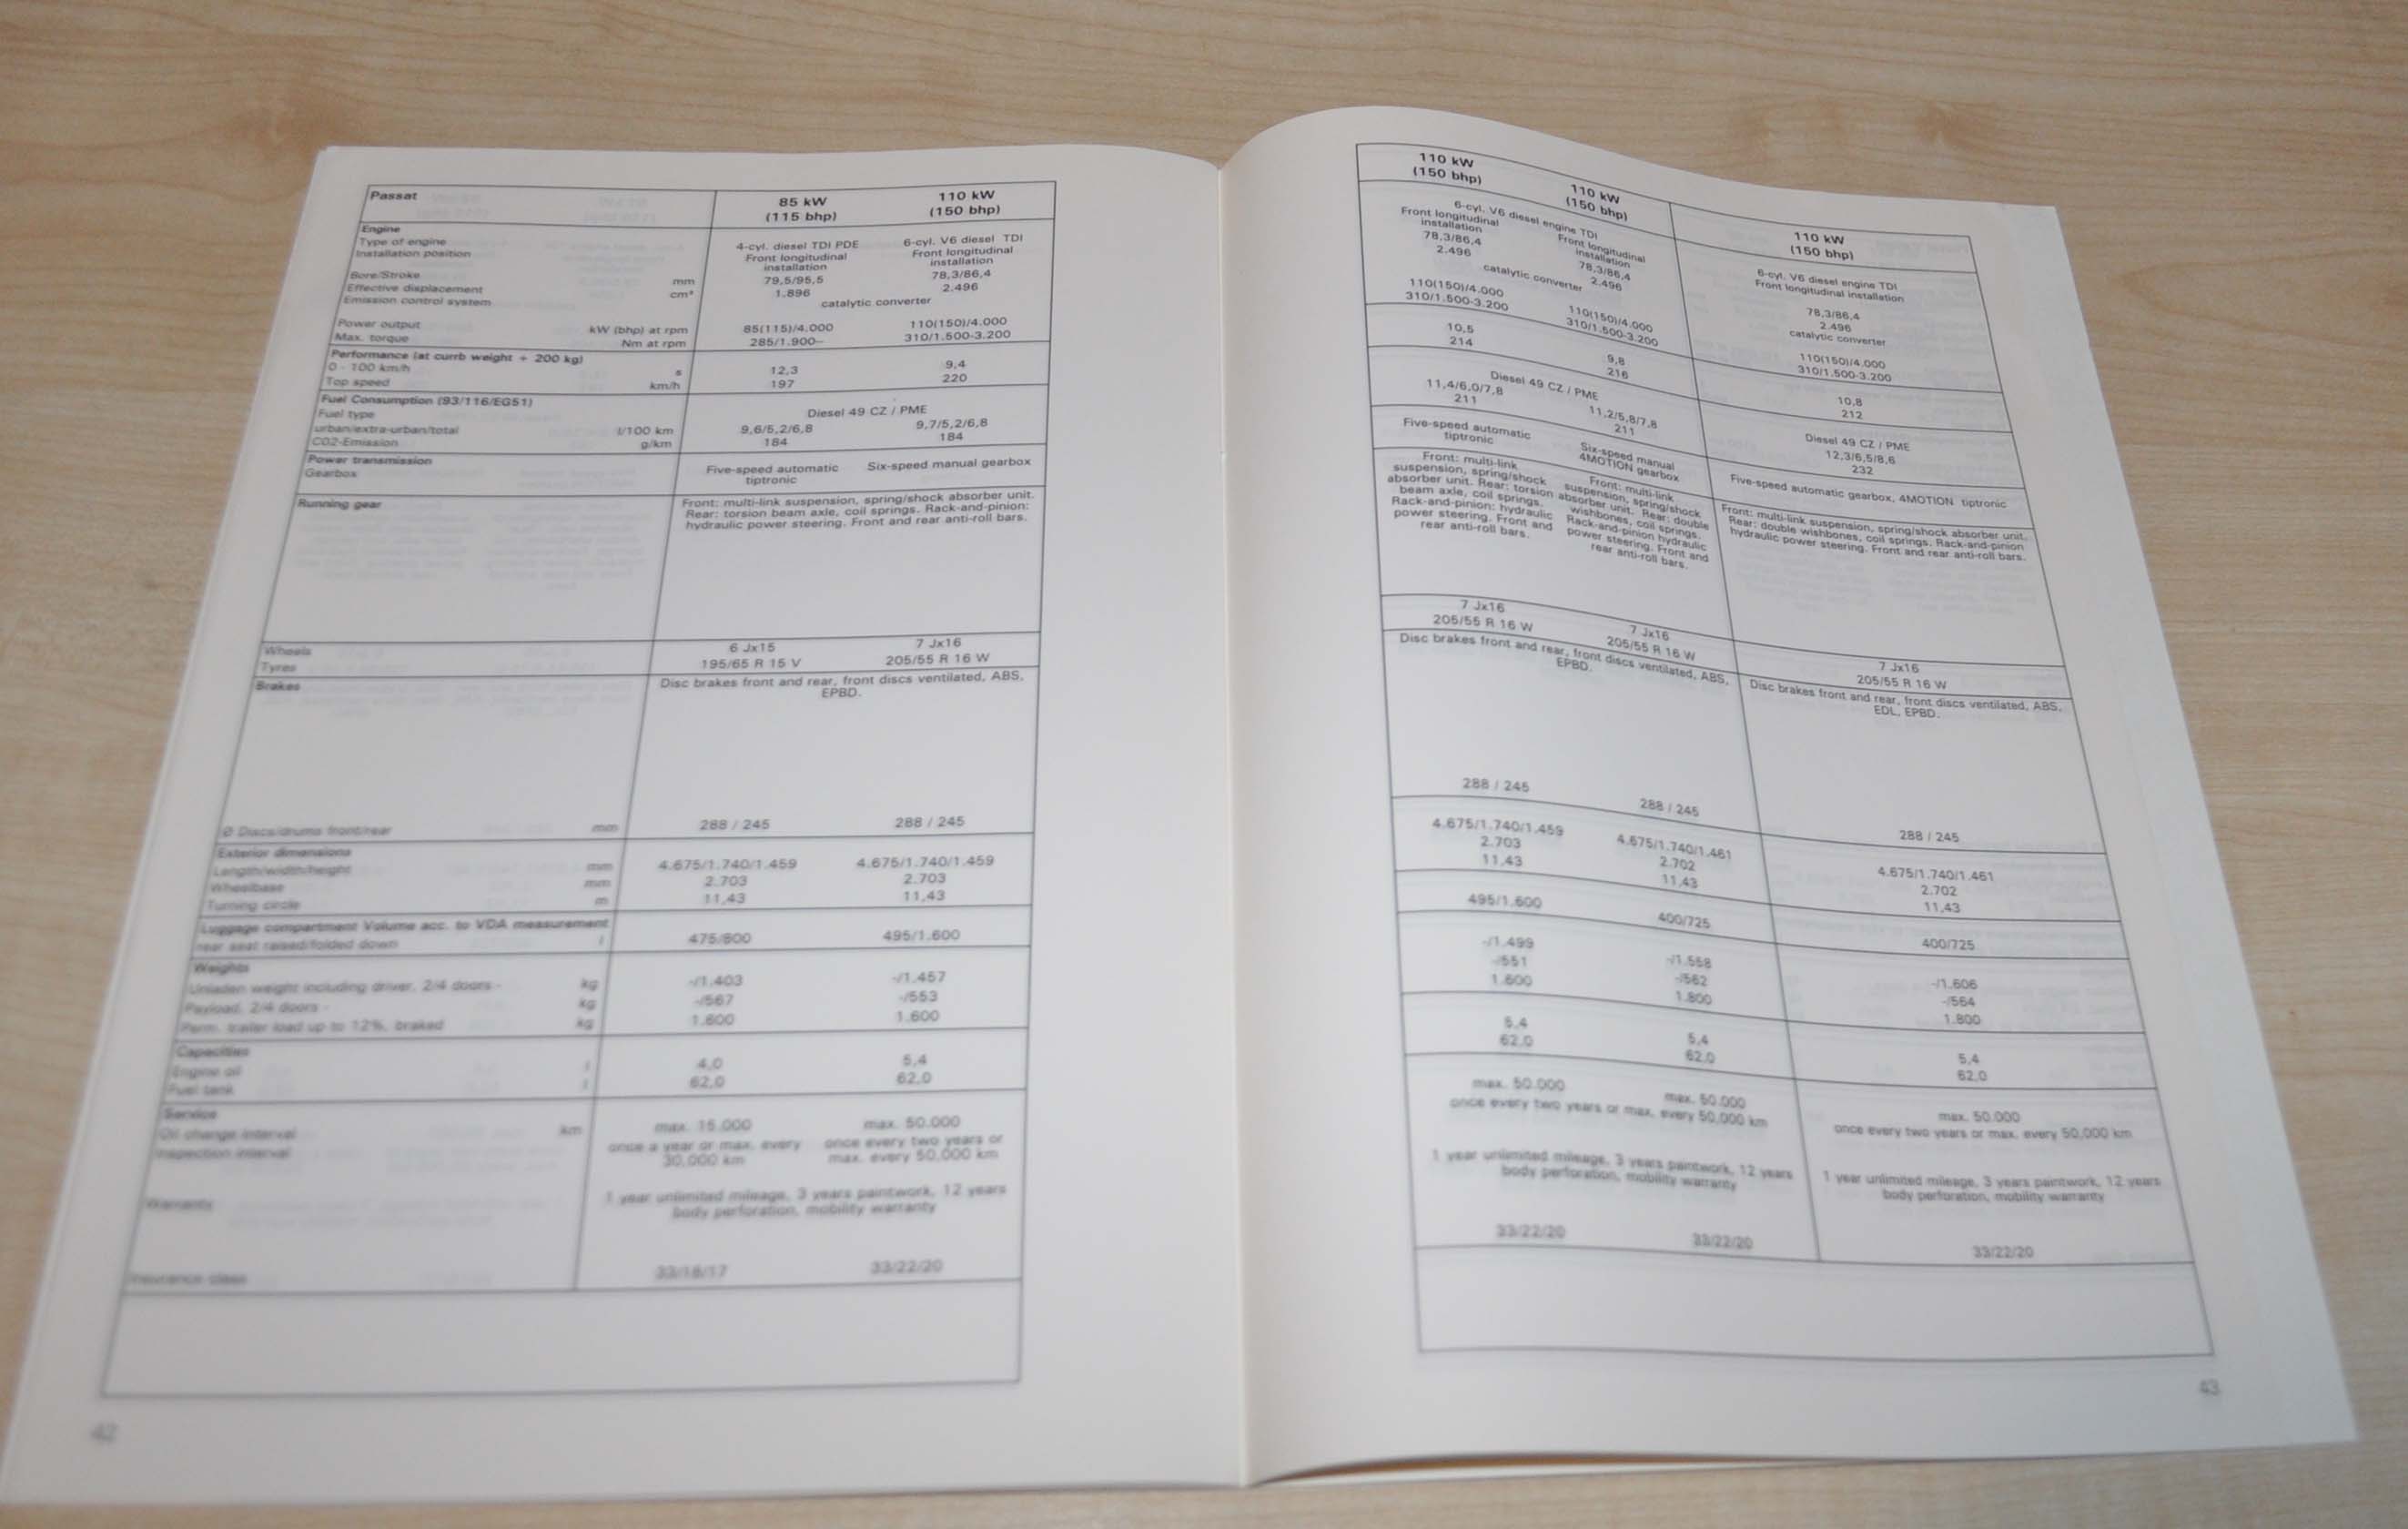 Passat
85 kW
(115 bhp)
110 kW
(150 bhp)
Engine
Type of engine 4-cyl. diesel TDI PDE 6-cyl. V6 diesel TDI
Installation position Front longitudinal installation Front longitudinal installation
Bore/Stroke mm 79,5/95,5 78,3/86,4
Effective displacement cm³ 1.896 2.496
Emission control system catalytic converter
Power output kW (bhp) at rpm 85(115)/4.000 110(150)/4.000
Max. torque Nm at rpm 285/1.900– 310/1.500-3.200
Performance (at currb weight + 200 kg)
0 - 100 km/h s 12,3 9,4
Top speed km/h 197 220
Fuel Consumption (93/116/EG51)
Fuel type Diesel 49 CZ / PME
urban/extra-urban/total l/100 km 9,6/5,2/6,8 9,7/5,2/6,8
CO2-Emission g/km 184 184
Power transmission
Gearbox Five-speed automatic tiptronic Six-speed manual gearbox
Running gear Front: multi-link suspension, spring/shock absorber unit.
Rear: torsion beam axle, coil springs. Rack-and-pinion:
hydraulic power steering. Front and rear anti-roll bars.
Wheels 6 Jx15 7 Jx16
Tyres 195/65 R 15 V 205/55 R 16 W
Brakes Disc brakes front and rear, front discs ventilated, ABS,
EPBD.
Ø Discs/drums front/rear mm 288 / 245 288 / 245
Exterior dimensions
Length/width/height mm 4.675/1.740/1.459 4.675/1.740/1.459
Wheelbase mm 2.703 2.703
Turning circle m 11,43 11,43
Luggage compartment Volume acc. to VDA measurement
rear seat raised/folded down l 475/800 495/1.600
Weights
Unladen weight including driver, 2/4 doors - kg -/1.403 -/1.457
Payload, 2/4 doors - kg -/567 -/553
Perm. trailer load up to 12%, braked kg 1.600 1.600
Capacities
Engine oil l 4,0 5,4
Fuel tank l 62,0 62,0
Service
Oil change interval km max. 15.000 max. 50.000
Inspection interval once a year or max. every 30,000 km once every two years or max. every 50,000 km
Warranty 1 year unlimited mileage, 3 years paintwork, 12 years
body perforation, mobility warranty
Insurance class 33/18/17 33/22/20
42
110 kW
(150 bhp)
110 kW
(150 bhp)
110 kW
(150 bhp)
6-cyl. V6 diesel engine TDI 6-cyl. V6 diesel engine TDI
Front longitudinal installation Front longitudinal installation Front longitudinal installation
78,3/86,4 78,3/86,4 78,3/86,4
2.496 2.496 2.496
catalytic converter catalytic converter
110(150)/4.000 110(150)/4.000 110(150)/4.000
310/1.500-3.200 310/1.500-3.200 310/1.500-3.200
10,5 9,8 10,8
214 216 212
Diesel 49 CZ / PME Diesel 49 CZ / PME
11,4/6,0/7,8 11,2/5,8/7,8 12,3/6,5/8,6
211 211 232
Five-speed automatic tiptronic Six-speed manual 4MOTION gearbox Five-speed automatic gearbox, 4MOTION tiptronic
Front: multi-link
suspension, spring/shock
absorber unit. Rear: torsion
beam axle, coil springs.
Rack-and-pinion: hydraulic
power steering. Front and
rear anti-roll bars.
Front: multi-link
suspension, spring/shock
absorber unit. Rear: double
wishbones, coil springs.
Rack-and-pinion hydraulic
power steering. Front and
rear anti-roll bars.
Front: multi-link suspension, spring/shock absorber unit.
Rear: double wishbones, coil springs. Rack-and-pinion
hydraulic power steering. Front and rear anti-roll bars.
7 Jx16 7 Jx16 7 Jx16
205/55 R 16 W 205/55 R 16 W 205/55 R 16 W
Disc brakes front and rear, front discs ventilated, ABS,
EPBD.
Disc brakes front and rear, front discs ventilated, ABS,
EDL, EPBD.
288 / 245 288 / 245 288 / 245
4.675/1.740/1.459 4.675/1.740/1.461 4.675/1.740/1.461
2.703 2.702 2.702
11,43 11,43 11,43
495/1.600 400/725 400/725
-/1.499 -/1.558 -/1.606
-/551 -/562 -/564
1.600 1.800 1.800
5,4 5,4 5,4
62,0 62,0 62,0
max. 50.000 max. 50.000 max. 50.000
once every two years or max. every 50,000 km once every two years or max. every 50,000 km
1 year unlimited mileage, 3 years paintwork, 12 years
body perforation, mobility warranty
1 year unlimited mileage, 3 years paintwork, 12 years
body perforation, mobility warranty
33/22/20 33/22/20 33/22/20
43